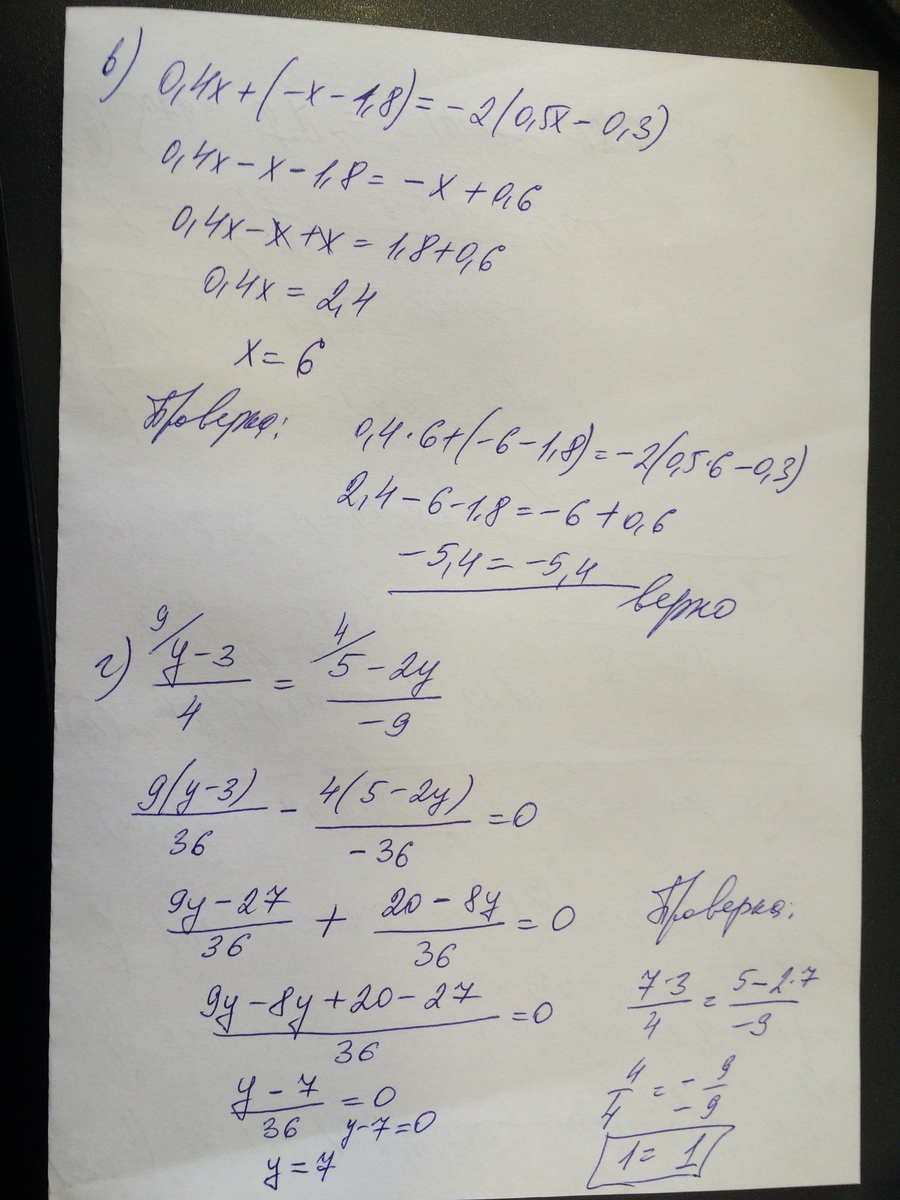 в) 0,4x+(-x-1,8)=-2(0,5x-0,3)
0,4x-x-1,8=-x+0,6
0,4x-x+x=1,8+0,6
0,4x=2,4
x=6
Проверка:
0,4·6+(-6-1,8)=-2(0,5·6-0,3)
2,4-6-1,8=-6+0,6
-5,4=-5,4
верно
г) 9/ y-3 / 4 = 4/ 5-2y / -9
9(y-3)/36 - 4(5-2y)/-36 =0
9y-27/36 + 20-8y/36 =0
9y-8y+20-27/36 =0
y-7/36 =0
y-7=0
y=7
Проверка:
7-3/4 = 5-2·7/-9
4/4 = -9/-9
1=1